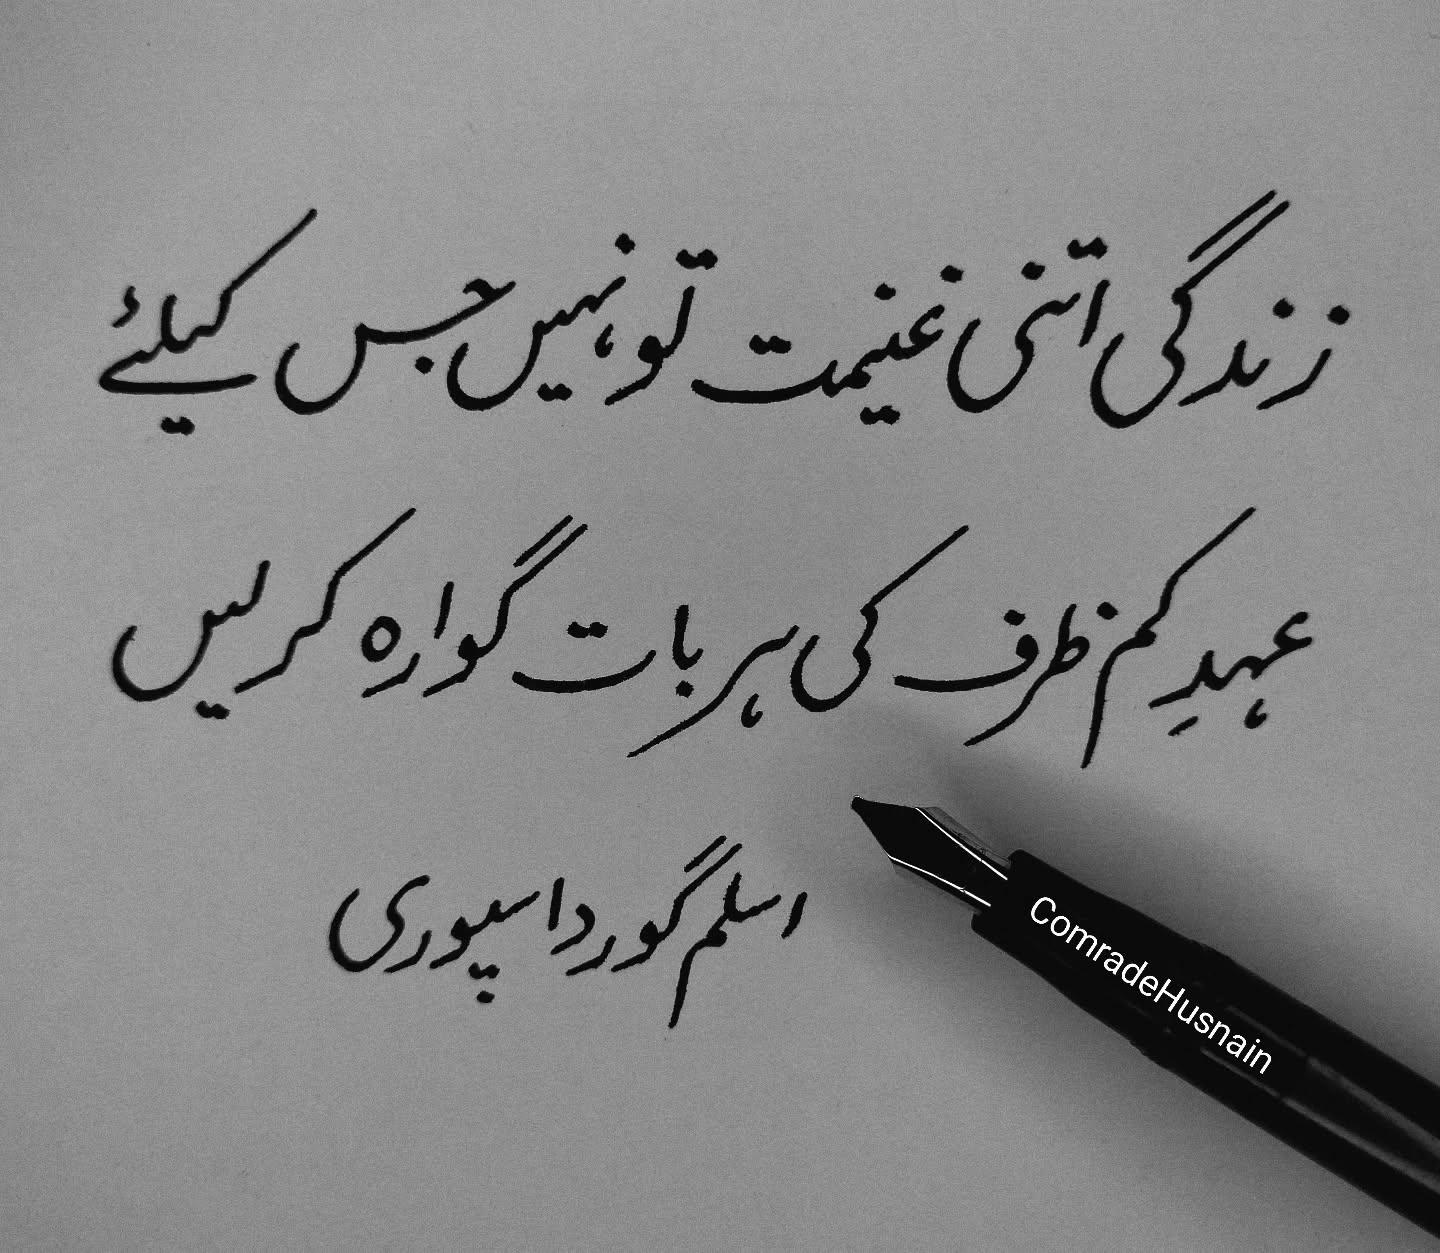 زندگی اتنی غنیمت تو نہیں جس کیلئے
عہدِ کم ظرف کی ہر بات گوارہ کر لیں
اسلم گورداسپوری
ComradeHusnain